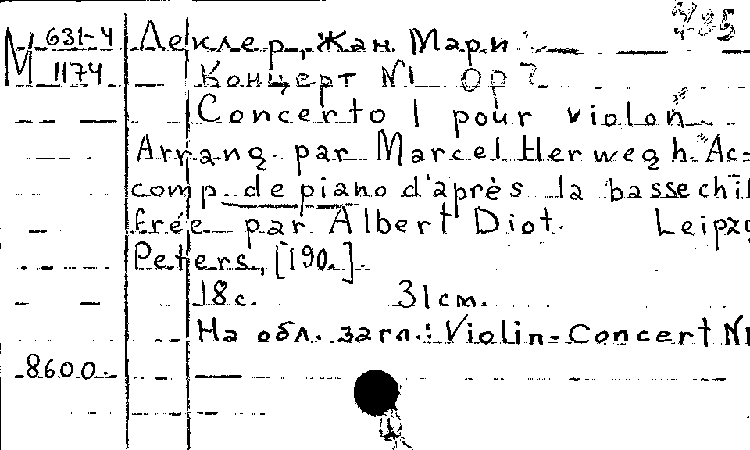 735
М 631-4
1174
Леклер, Жан Мари
Концерт N1 Op 7
Concerto 1 pour violon
Arrang. par Marcel Herwegh. Ac=
comp. de piano d'après la basse chif
frée par Albert Diot. Leipzg
Peters, [190.].
18 с. 31 cm.
На обл. загл.: Violin-Concert N1
8600